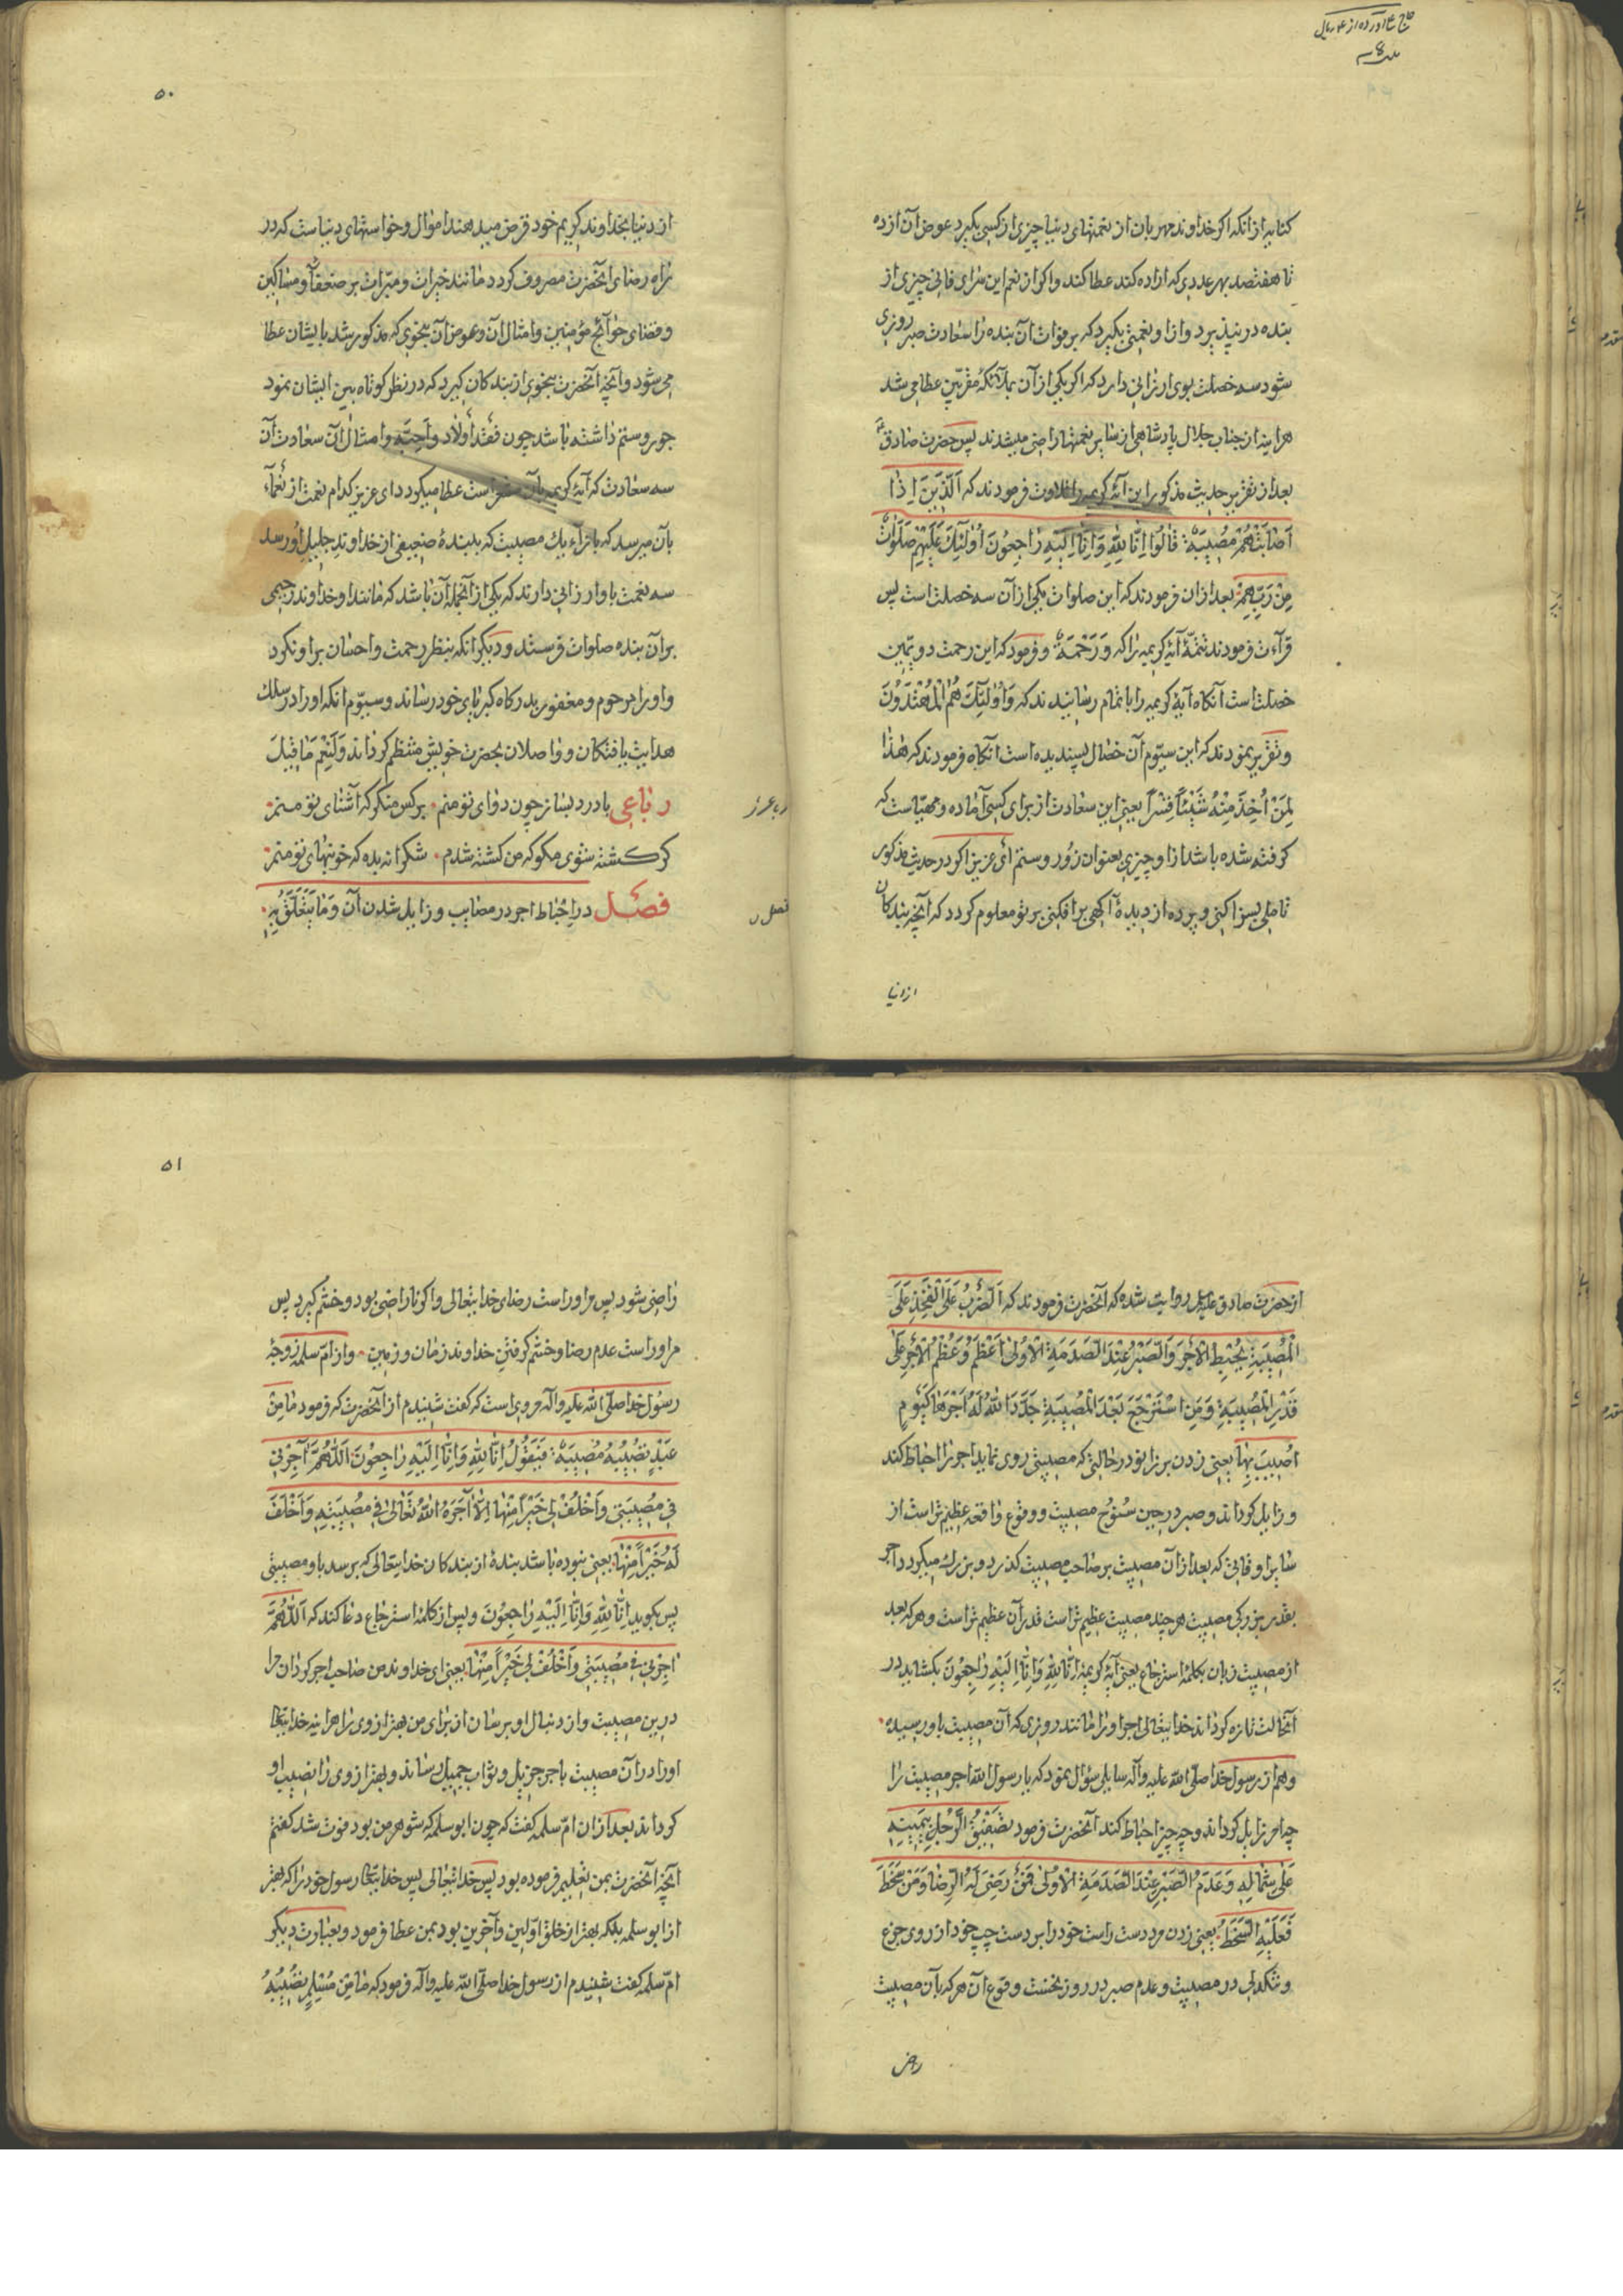 ۵۰
کنایه از انکه اکر خداوند مهربان از نعمتهای دنیا چیزی از کسی بکیرد عوض آن از ده
تا هفتصد بهر عددی که اراده کند عطا کند و اکر از نعم این سرای فانی چیزی از
بنده در نپذیرد و از او نعمتی بکیرد که بر فوات آن بنده را سعادت صبر روزی
شود سه خصلت بوی ارزانی دارد که اکر یکی از آن بملآئکهٔ مقرّبین عطا می شد
هراینه از جناب جلال پادشاهی از سایر نعمتها راضی میشدند پس حضرت صادق
بعد از تقریر حدیث مذکور این آیهٔ کریمه را تلاوت فرمودند که اَلَّذینَ اِذا
اَصابَتْهُمْ مُصیبَةٌ قالُوا اِنّا لِلّهِ وَاِنّا اِلَیْهِ راجِعُونَ اُولئِكَ عَلَیْهِمْ صَلَواتٌ
مِنْ رَبِّهِمْ بعد ازان فرمودند که این صلوات یکی از آن سه خصلت است پس
قرآءت فرمودند تتمّهٔ آیهٔ کریمه را که وَرَحْمَةٌ و فرمود که این رحمت دویّمین
خصلت است آنکاه آیهٔ کریمه را باتمام رسانیدند که وَاُولئِكَ هُمُ الْمُهْتَدُونَ
و تقریر نمودند که این سیّوم آن خصال پسندیده است آنکاه فرمودند که هذا
لِمَنْ اُخِذَ مِنْهُ شَیْئاً قَسْراً یعنی این سعادت از برای کسی آماده و مهیّاست که
کرفته شده باشد ازا و چیزی بعنوان زور و ستم ای عزیز اکر در حدیث مذکور
تاملی بسزا کنی و پرده از دیدهٔ آکهی برافکنی بر تو معلوم کردد که آنچه بندکان
از دنیا
از دنیا بخداوند کریم خود قرض میدهند اموال و خواستهای دنیاست که در
راه رضای آنحضرت مصروف کردد مانند خیرات و مبرّات بر ضعفآء و مساکین
و قضای حوآئج مؤمنین و امثال آن و عوض آن بنحوی که مذکور شد بایشان عطا
می شود و آنچه آنحضرت بنحوی از بندکان کیرد که در نظر کوتاه بین ایشان نمود
جور و ستم داشته باشد چون فقد اولاد و احبّه و امثال آن سعادت آن
سه سعادت که آیهٔ کریمه بآن است عطا میکردد ای عزیز کدام نعمت از نعمآء
بآن میرسد که بازآء یك مصیبت که ببندهٔ ضعیفی از خداوند جلیل او رسد
سه نعمت باو ارزانی دارند که یکی از آنجمله آن باشد که مانند او خداوند رحیمی
بر آن بنده صلوات فرستد و دیکر انکه بنظر رحمت و احسان بر او نکرد
و او را مرحوم و مغفور بدرکاه کبریای خود رساند و سیّوم انکه او را در سلك
هدایت یافتکان و واصلان بحضرت خویش منتظم کرداند وَلَنِعْمَ ما قیلَ
رباعی با درد بساز چون دوای تو منم · بر کس منکر که آشنای تو منم ·
کر کشته شوی مکو که من کشته شدم · شکرانه بده که خونبهای تو منم ·
فصل در احباط اجر در مصایب و زایل شدن آن وَما یَتَعَلَّقُ بِهِ ·
۵۱
از حضرت صادق علیه السلام روایت شده که آنحضرت فرمودند که اَلضَّرْبُ عَلَی الْفَخِذِ عَلَی
الْمُصیبَةِ یُحْبِطُ الْاَجْرَ وَالصَّبْرُ عِنْدَ الصَّدَمَةِ الْاُولی اَعْظَمُ وَعُظْمُ الْاَجْرِ عَلی
قَدْرِ الْمُصیبَةِ وَمَنِ اسْتَرْجَعَ بَعْدَ الْمُصیبَةِ جَدَّدَ اللهُ لَهُ اَجْرَها کَیَوْمِ
اُصیبَ بِها یعنی زدن بر زانو در حالتی که مصیبتی روی نماید اجر را احباط کند
و زایل کرداند و صبر در حین سُنوح مصیبت و وقوع واقعه عظیم تراست از
سایر اوقاتی که بعد از آن مصیبت بر صاحب مصیبت کذرد و بزرك میکردد اجر
بقدر بزرکی مصیبت هر چند مصیبت عظیم تراست قدر آن عظیم تراست و هر که بعد
از مصیبت زبان بکلمهٔ استرجاع یعنی آیهٔ کریمهٔ اِنّا لِلّهِ وَاِنّا اِلَیْهِ راجِعُونَ بکشاید در
آنحالت تازه کرداند خدایتعالی اجر او را مانند روزی که آن مصیبت باو رسیده ·
و هم از رسول خدا صلّی الله علیه وآله سایلی سؤال نمود که یا رسول الله اجر مصیبت را
چه امر زایل کرداند و چه چیز احباط کند آنحضرت فرمود تَصْفیقُ الرَّجُلِ بِیَمینِهِ
عَلی شِمالِهِ وَعَدَمُ الصَّبْرِ عِنْدَ الصَّدَمَةِ الْاُولی فَمَنْ رَضِیَ لَهُ الرِّضا وَمَنْ سَخَطَ
فَعَلَیْهِ السَّخَطُ یعنی زدن مرد دست راست خود را بر دست چپ خود از روی جزع
و تنکدلی در مصیبت و عدم صبر در روز نخست وقوع آن هر که بآن مصیبت
راضی
راضی شود پس مر اوراست رضای خدایتعالی و اکر ناراضی بود و خشم کیرد پس
مر اوراست عدم رضا و خشم کرفتن خداوند زمان و زمین · و از امّ سلمه زوجهٔ
رسول خدا صلّی الله علیه وآله مروی است که کفت شنیدم از آنحضرت که فرمود ما مِنْ
عَبْدٍ تُصیبُهُ مُصیبَةٌ فَیَقُولُ اِنّا لِلّهِ وَاِنّا اِلَیْهِ راجِعُونَ اَللّهُمَّ آجِرْنی
فی مُصیبَتی وَاَخْلُفْ لی خَیْراً مِنْها اِلّا آجَرَهُ اللهُ تَعالی فی مُصیبَتِهِ وَاَخْلَفَ
لَهُ خَیْراً مِنْها یعنی نبوده باشد بندهٔ از بندکان خدایتعالی که برسد باو مصیبتی
پس بکوید اِنّا لِلّهِ وَاِنّا اِلَیْهِ راجِعُونَ و پس از کلمهٔ استرجاع دعا کند که اَللّهُمَّ
اَجِرْنی فی مُصیبَتی وَاَخْلُفْ لی خَیْراً مِنْها یعنی ای خداوند من صاحب اجر کردان مرا
درین مصیبت و از دنبال او برسان از برای من بهتر از وی را هراینه خدایتعا
او را در آن مصیبت باجر جزیل و ثواب جمیل رساند و بهتر از وی را نصیب او
کرداند بعد ازان امّ سلمه کفت که چون ابو سلمه که شوهر من بود فوت شد کفتم
آنچه آنحضرت بمن تعلیم فرموده بود پس خدایتعالی پس خدایتعا رسول خود را که بهتر
از ابو سلمه بلکه بهتر از خلق اوّلین و آخرین بود بمن عطا فرمود و بعبارت دیکر
امّ سلمه کفت شنیدم از رسول خدا صلّی الله علیه وآله فرمود که ما مِنْ مُسْلِمٍ تُصیبُهُ